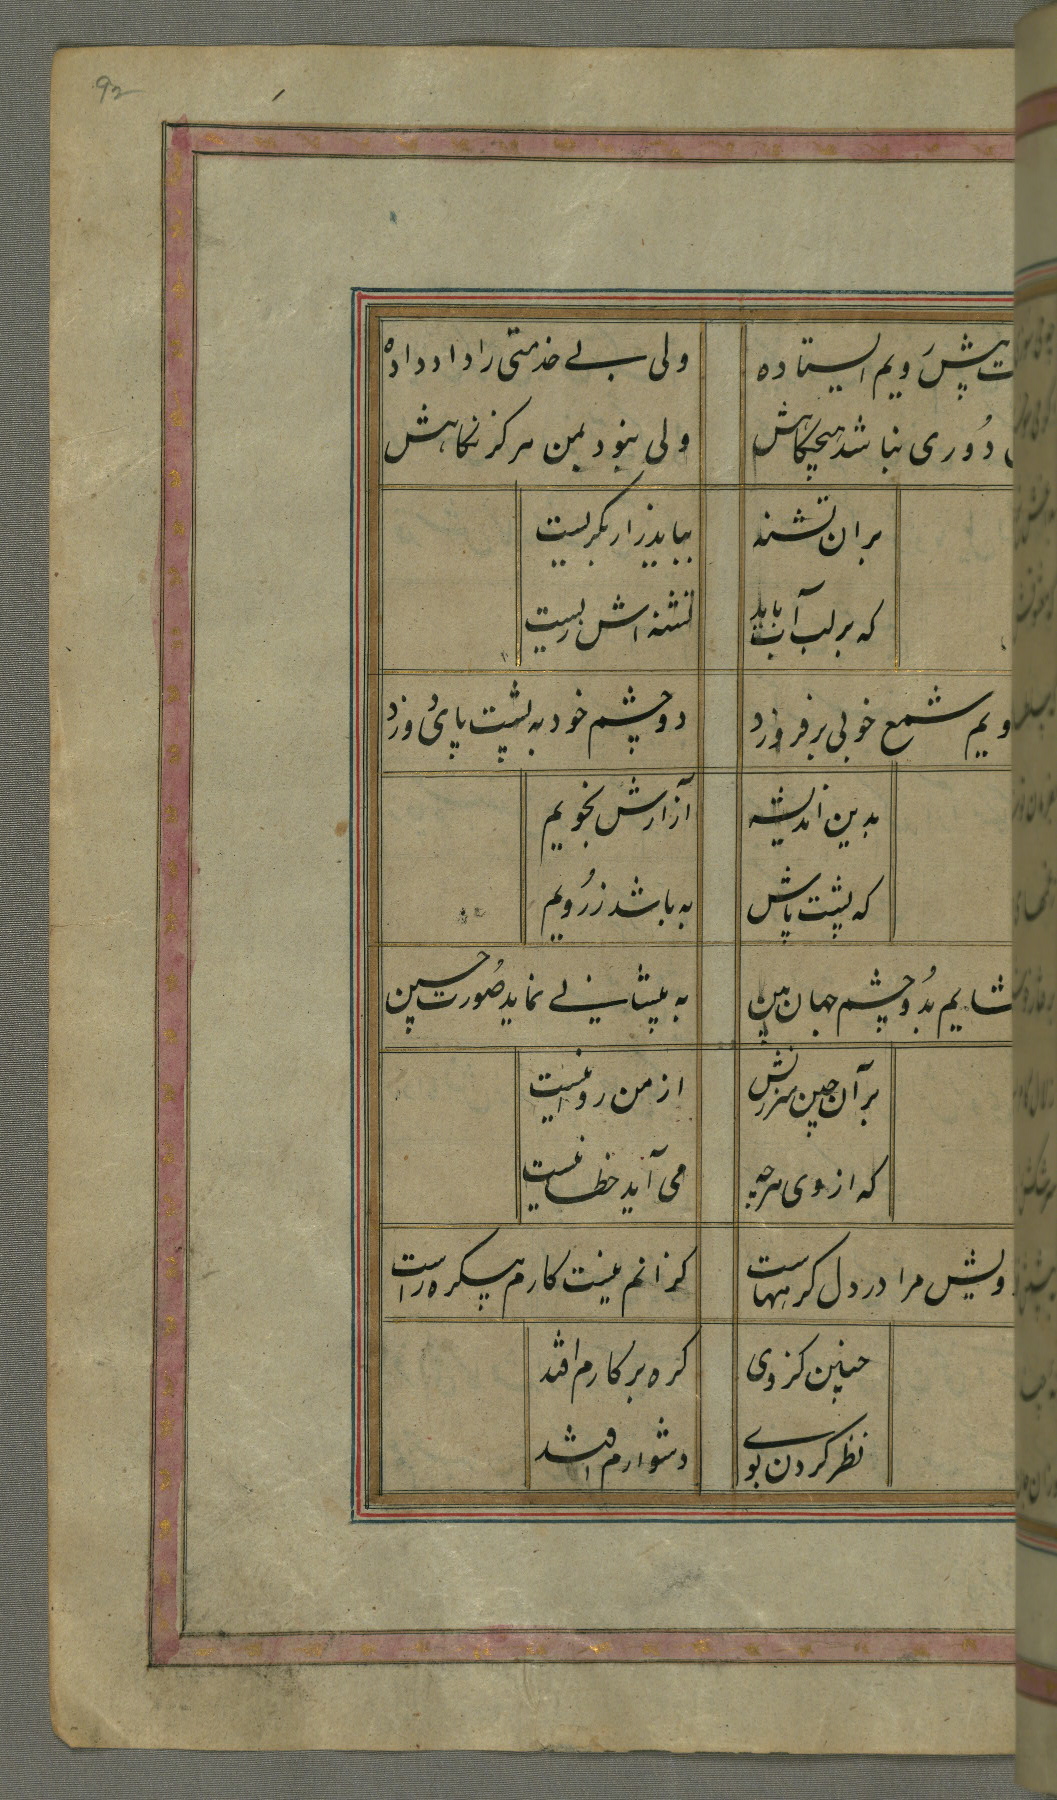 92
ت پیش رویم ایستاده ولی بی خدمتی را داد داده
دوری نباشد هیچکاهش ولی نبود بمن هرگز نگاهش
بران تشنه بباید زار بگریست
که بر لب آب باید تشنه اش زیست
ویم شمع خوبی بر فروزد دو چشم خود به پشت پای دوزد
بدین اندیشه آزارش نجویم
که پشت پاش به باشد ز رویم
شایم بدو چشم جهان بین به پیشانی نماید صورت چین
بر آن چین سرزنش از من روا نیست
که از وی هرچه می آید خطا نیست
ویش مرا در دل گرههاست کزانم نیست کارم یکگره راست
چنین کز وی گره بر کارم افتد
نظر کردن بوی دشوارم افتد